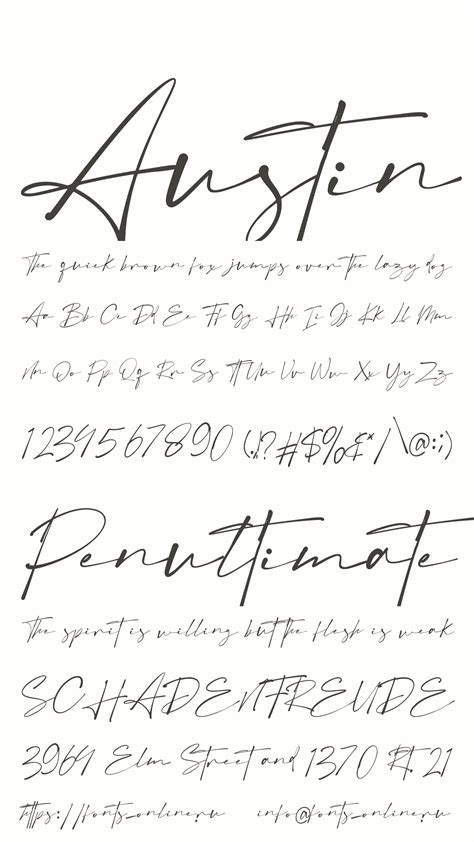 Austin
The quick brown fox jumps over the lazy dog
Aa Bb Cc Dd Ee Ff Gg Hh Ii Jj Kk Ll Mm
Nn Oo Pp Qq Rr Ss Tt Uu Vv Ww Xx Yy Zz
1234567890 (.,!?#$%&*/\@:;)
Penultimate
The spirit is willing but the flesh is weak
SCHADENFREUDE
3964 Elm Street and 1370 Rt. 21
https://fonts_online.ru info@fonts_online.ru